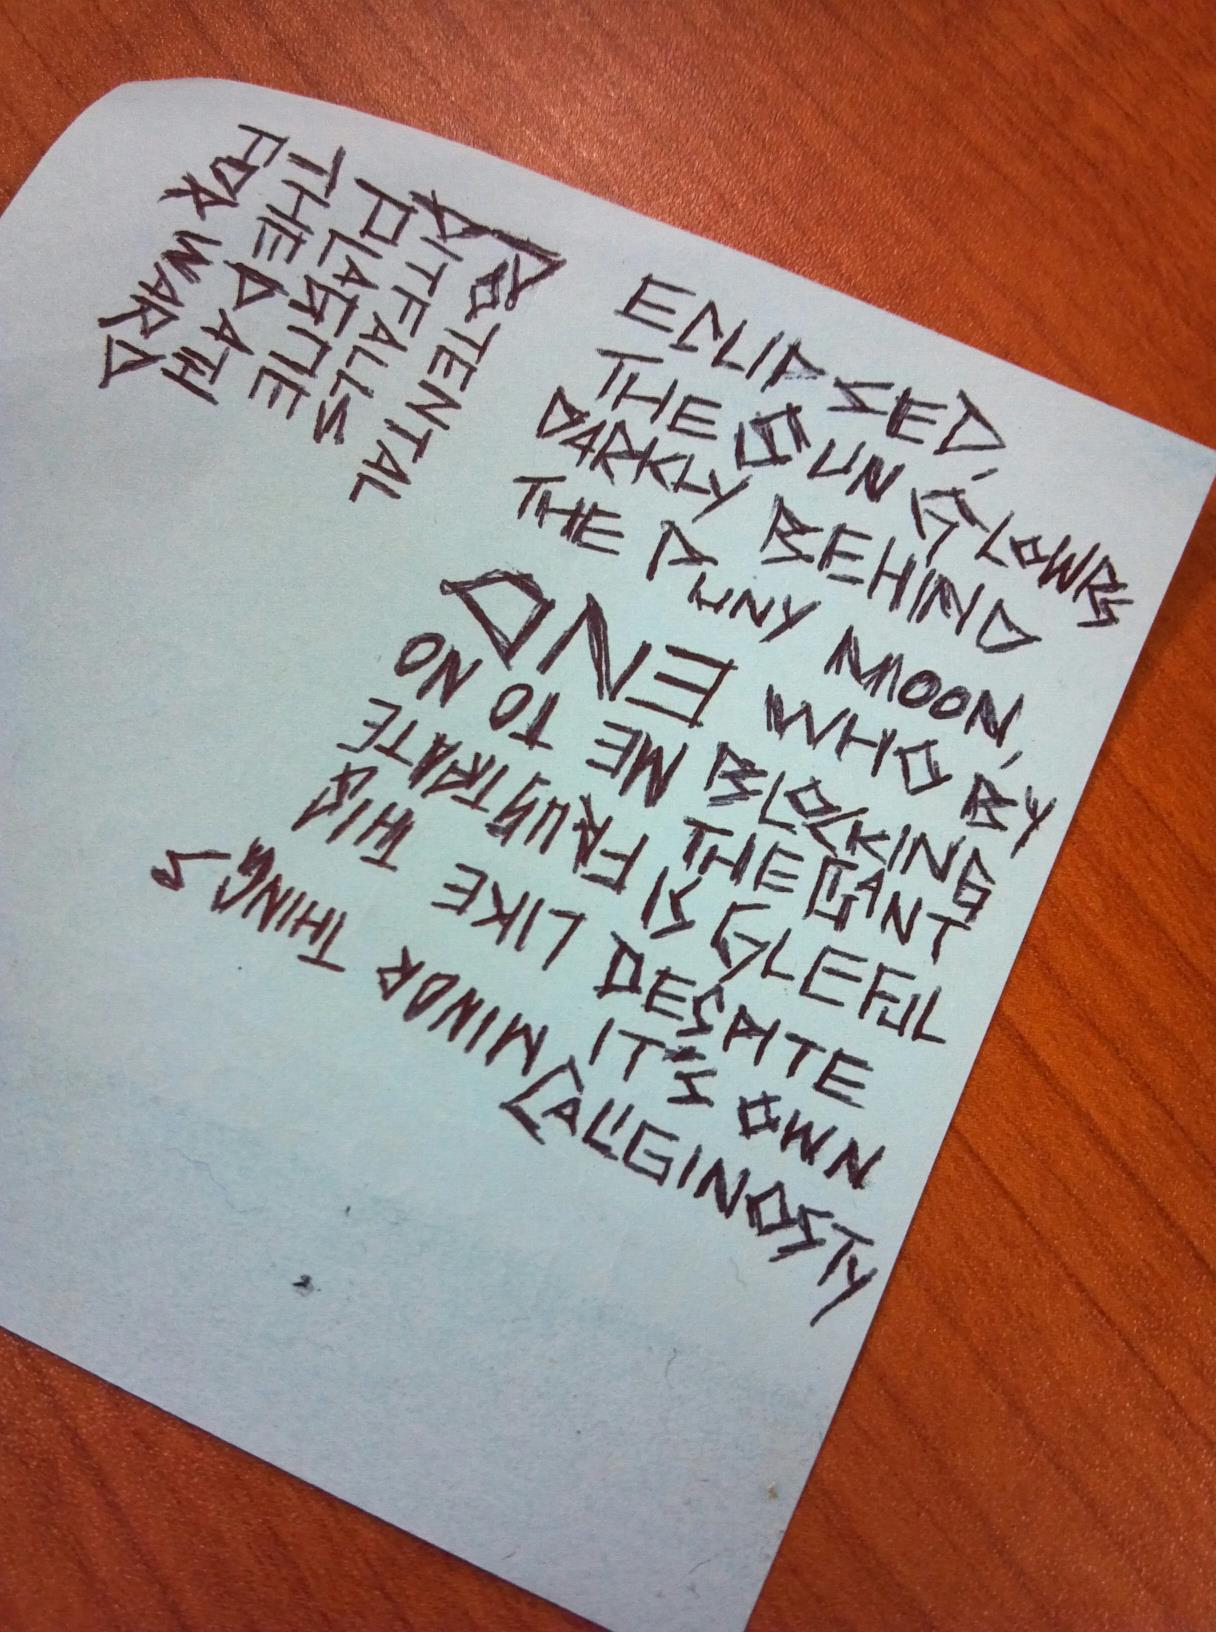 ECLIPSED,
THE SUN GLOWRS
DARKLY BEHIND
THE PUNY MOON,
WHO BY
BLOCKING
THE GIANT
IS GLEFUL
DESPITE
IT'S OWN
CALIGINOSTY
POTENTAL
PITFALLS
PLAGUE
THE PATH
FORWARD
MINOR THINGS
LIKE THIS
FRUSTRATE
ME TO NO
END